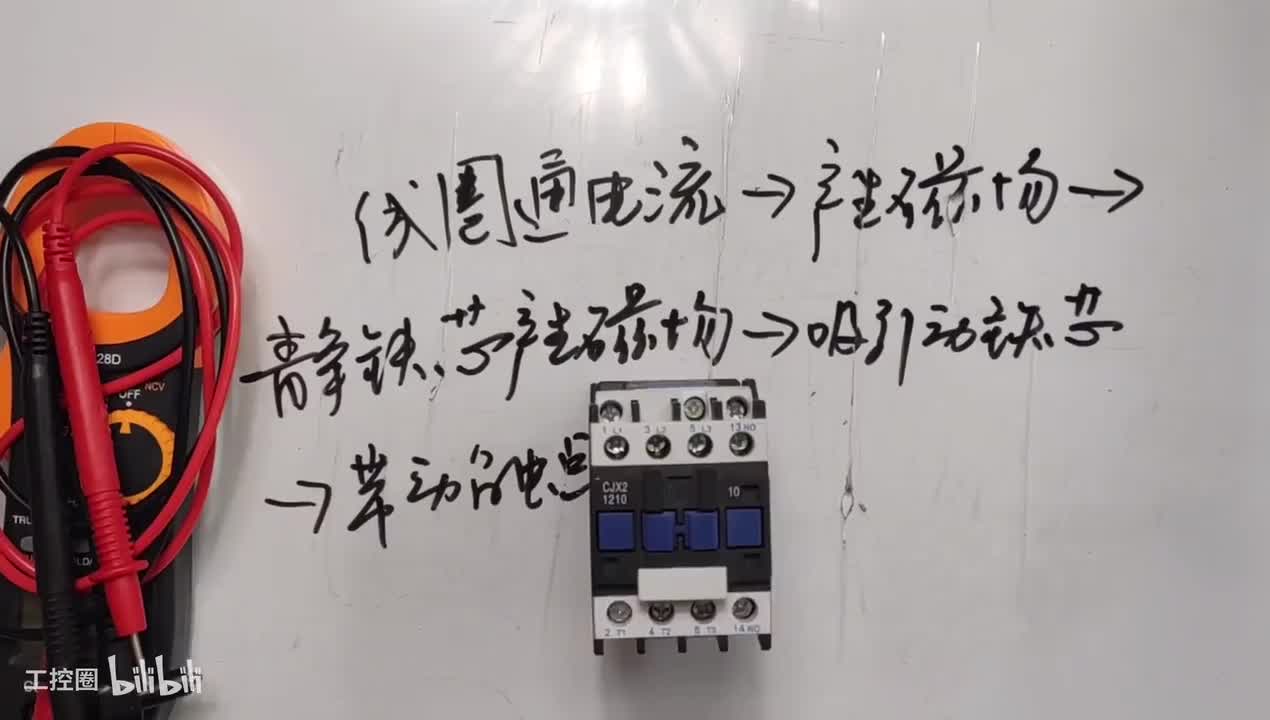 线圈通电流→产生磁场→
静铁芯产生磁场→吸引动铁芯
→带动触点
28D
NCV
OFF
1 L1 3 L2 5 L3 13 NO
CJX2
1210
10
2 T1 4 T2 6 T3 14 NO
工控圈 bilibili